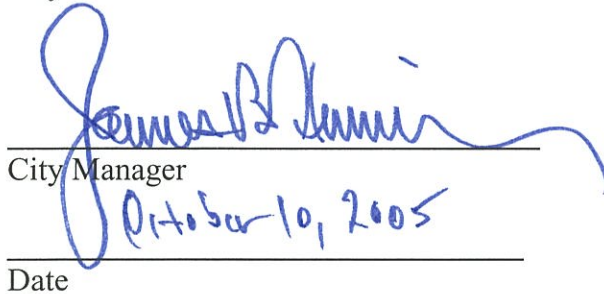 James B
City Manager
October 10, 2005
Date